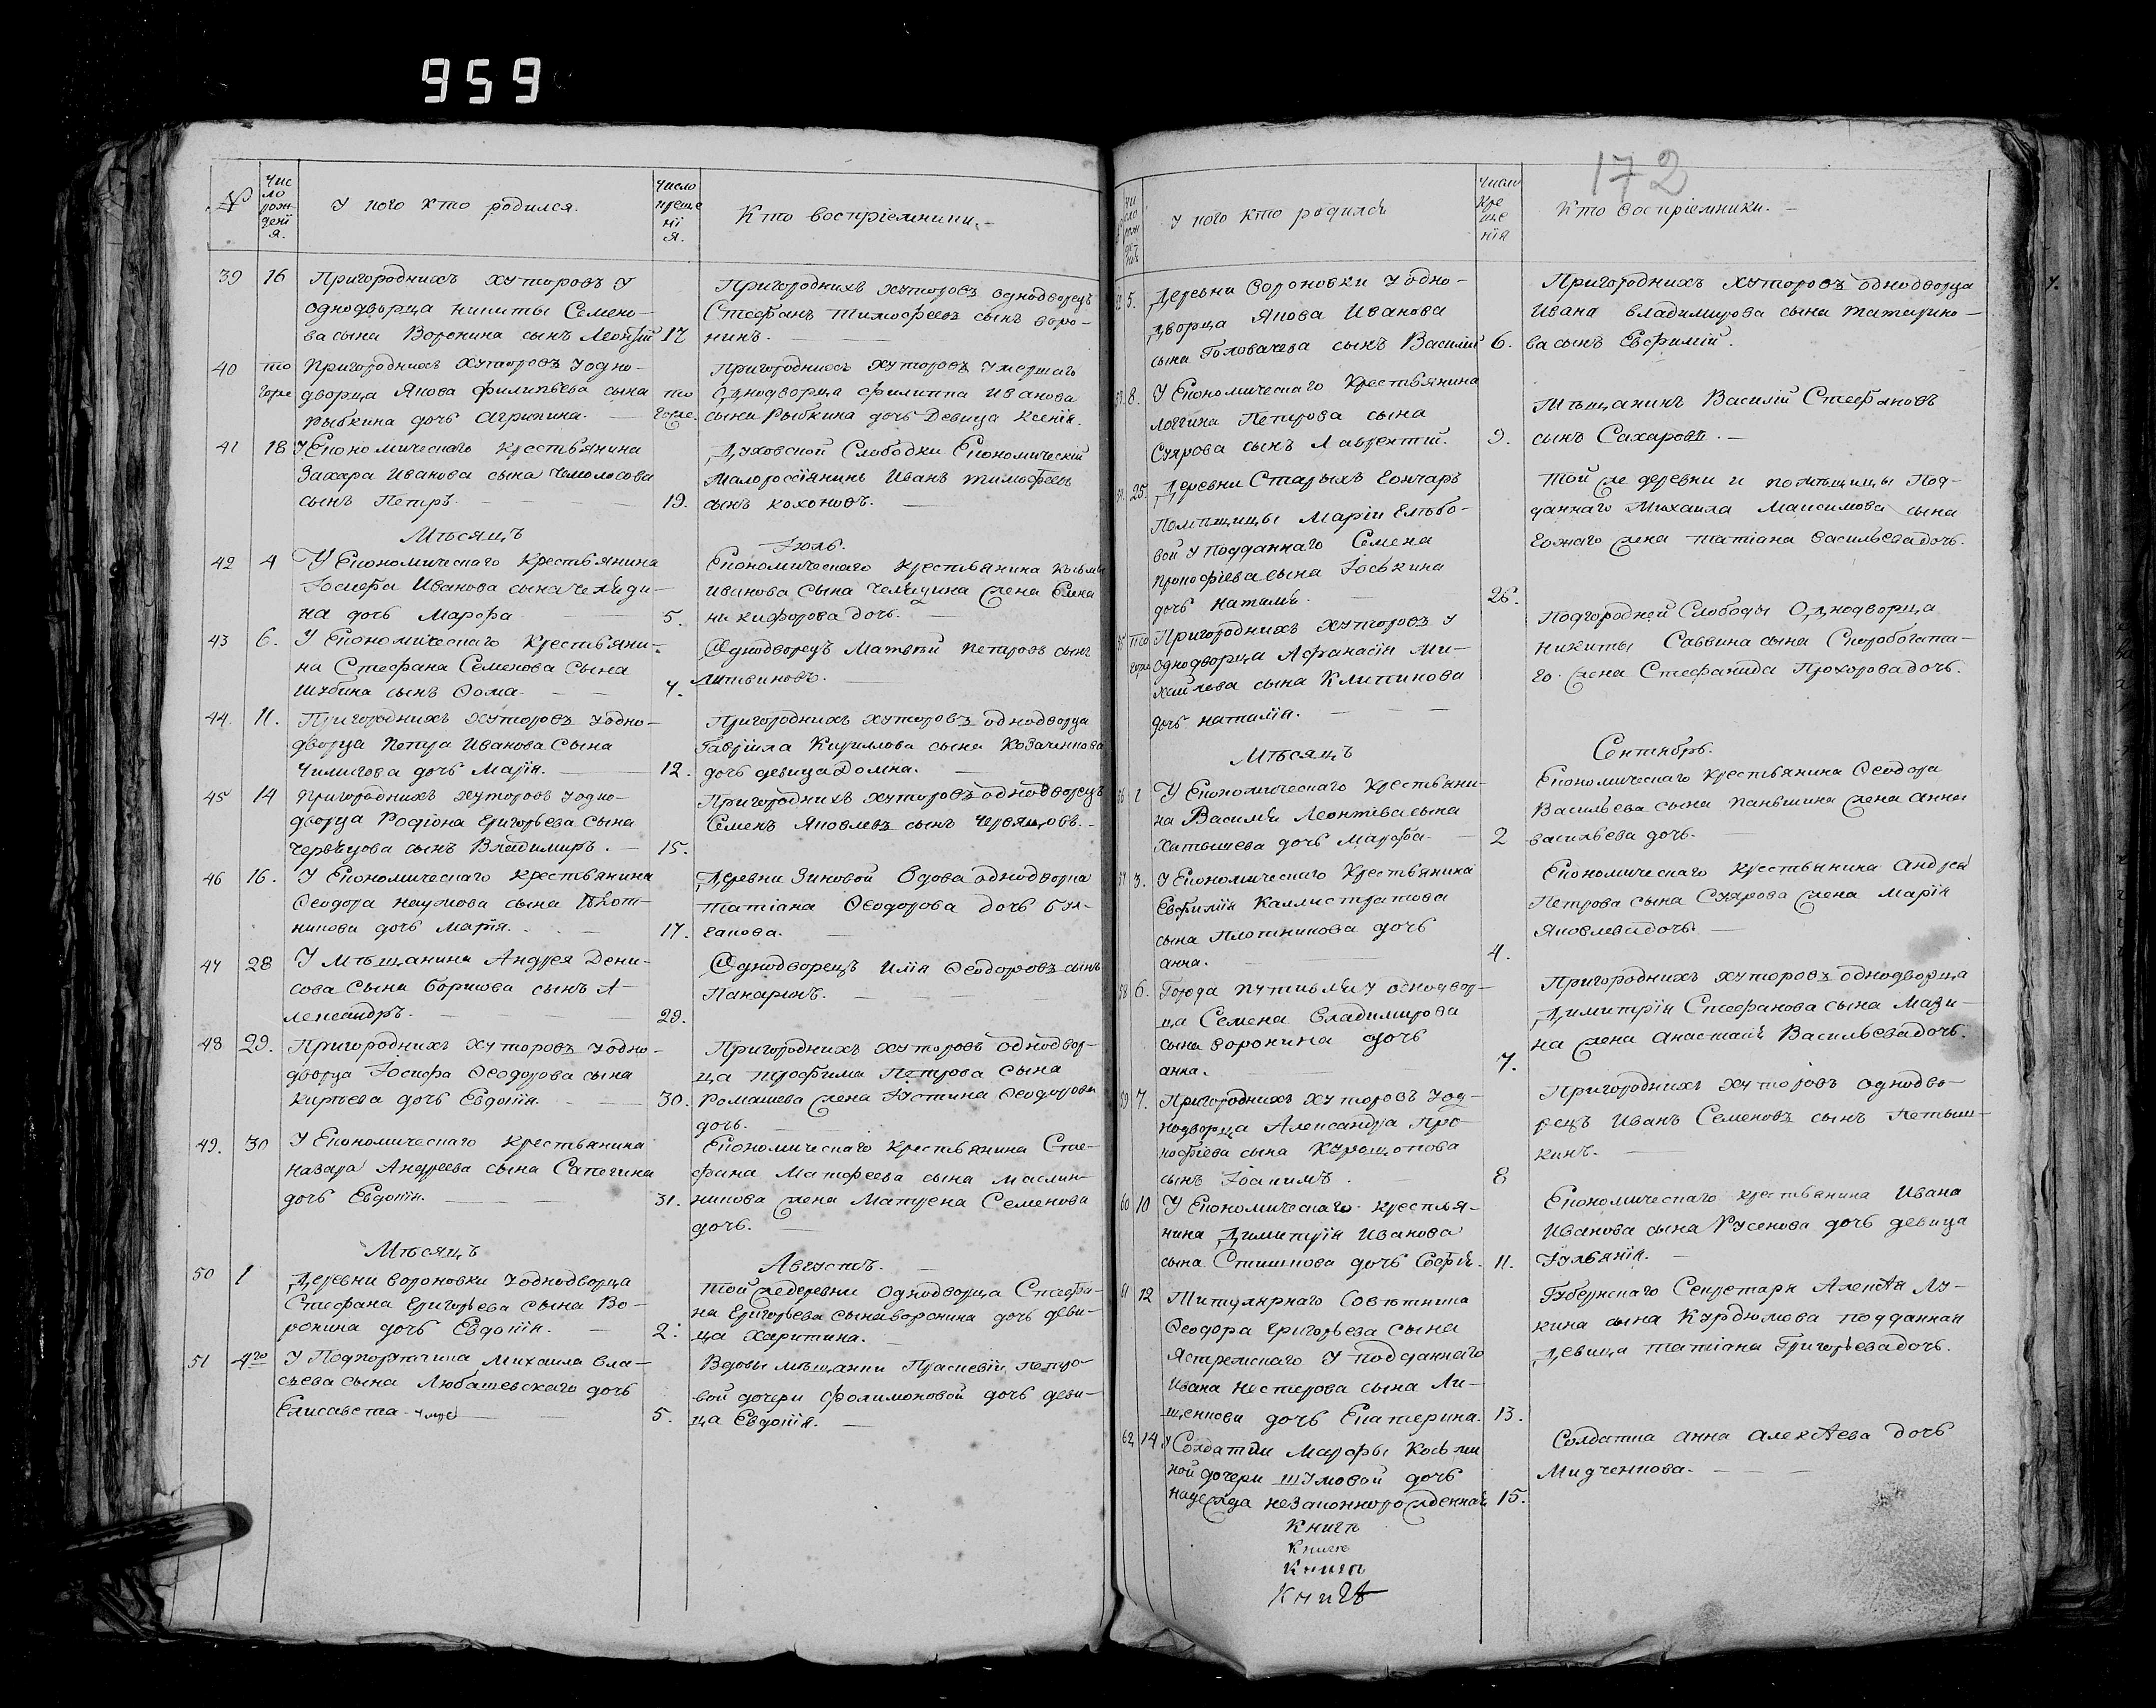 959
172
№
Чис
ло
рож
дені
я.
У кого кто родился.
Число
креще
ні
я.
Кто воспріемники.
39 16 Пригороднихъ хуторовъ У
однодворца Никиты Семено-
ва сына Воронина сынъ Леонтій 17
Пригороднихъ хуторовъ однодворецъ
Стефанъ Тимофеевъ сынъ Воро-
нинъ.
40 то гоже Пригороднихъ хуторовъ У одно-
дворца Якова Филипьева сына
Рыбкина дочь Агрипина. то гоже.
Пригороднихъ хуторовъ Умершаго
Однодворца Филиппа Иванова
сына Рыбкина дочь Девица Ксенія.
41 18 У Економическаго крестьянина
Захара Иванова сына
сынъ Петръ. 19.
Духовской Слободки Економическій
Малороссіянинъ Иванъ Тимофеевъ
сынъ Кохоновъ.
Мѣсяцъ Іюль.
42 4 У Економическаго Крестьянина
Іосифа Иванова сына Челяди-
на дочь Марфа 5.
Економическаго крестьянина Косьмы
Иванова Сына Челядина жена Елена
Никифорова дочь.
43 6. У Економическаго Крестьяни-
на Стефана Семенова Сына
Шубина сынъ Фома. 7.
Однодворецъ Матвѣй Петровъ сынъ
Литвиновъ.
44. 11. Пригороднихъ хуторовъ У одно-
дворца Петра Иванова Сына
Чимигова дочь Марія. 12.
Пригороднихъ хуторовъ однодворца
Гавріила Кирилова сына Козаченкова
дочь девица Домна.
45 14 Пригороднихъ хуторовъ У одно-
дворца Родіона Григорьева Сына
Червяцова сынъ Владимиръ. 15.
Пригороднихъ хуторовъ однодворецъ
Семенъ Яковлевъ сынъ Червяцовъ.
46 16. У Економическаго крестьянина
Феодора Наумова сына
никова дочь Марія. 17.
Деревни Зиновой Вдова однодворка
Татіана Феодорова дочь Бул-
гакова.
47 28 У Мѣщанина Андрея Дени-
сова Сына Борисова сынъ А-
лександръ. 29.
Однодворецъ Илія Феодоровъ сынъ
Панаринъ.
48 29. Пригороднихъ хуторовъ У одно-
дворца Іосифа Феодорова сына
Кирѣева дочь Евдокія. 30.
Пригороднихъ хуторовъ однодвор-
ца Трофима Петрова Сына
Ромашева жена Іустина Феодорова
дочь.
49. 30 У Економическаго крестьянина
Назара Андреева сына Сапегина
дочь Евдокія. 31.
Економическаго крестьянина Сте-
фана Матфеева сына Маслин-
никова жена Матрена Семенова
дочь.
Мѣсяцъ Августъ.
50 1 Деревни Вороновки У однодворца
Стефана Григорьева сына Во-
ронина дочь Евдокія. 2.
Той же деревни Однодворца Стефа-
на Григорьева сына Воронина дочь деви-
ца Харитина.
51 4го У Подпоручика Михаила Вла-
сьева сына Любашевскаго дочь
Елисавета. 5.
Вдовы мѣщанки Прасковіи Петро-
вой дочери Филимоновой дочь деви-
ца Евдокія.
У кого кто родился
Число
кре
ще
нія
Кто воспріемники.
5. Деревни Вороновки У одно-
дворца Якова Иванова
сына Головачева сынъ Василій 6.
Пригороднихъ хуторовъ однодворца
Ивана Владимирова сына Татарино-
ва сынъ Евфимій.
8. У Економическаго Крестьянина
Логгина Петрова сына
Суярова сынъ Лаврентій. 9.
Мѣщанинъ Василій Стефановъ
сынъ Сахаровъ.
25. Деревни Старыхъ Гончаръ
Помѣщицы Маріи
вой У подданнаго Семена
Прокофіева сына Іоськина
дочь Наталія. 26.
Той же деревни и помѣщицы Под-
даннаго Михаила Максимова сына
жена Татіана Васильева дочь.
то гоже Пригороднихъ хуторовъ У
однодворца Афанасія Ми-
хайлова сына Клитинова
дочь Наталія.
Подгородней Слободы Однодворца
Никиты Саввина сына Скоробогата-
го жена Стефанида Прохорова дочь.
Мѣсяцъ Сентябрь.
1 У Економическаго Крестьяни-
на Василія Леонтьева сына
Хатышева дочь Марфа. 2
Економическаго Крестьянина Феодора
Васильева сына Паньшина жена Анна
Васильева дочь.
3. У Економическаго Крестьянина
Евфимія Каллистратова
сына Плотникова дочь
Анна. 4.
Економическаго крестьянина Андрея
Петрова сына Суярова жена Марія
Яковлева дочь
58 6. Города Путивля У однодвор-
ца Семена Владимирова
сына Воронина дочь
Анна. 7.
Пригороднихъ хуторовъ однодворца
Димитрія Стефанова сына Мази-
на жена Анастасія Васильева дочь.
59 7. Пригороднихъ хуторовъ У од-
нодворца Александра Про-
кофіева сына Курецокова
сынъ Іоакимъ. 8
Пригороднихъ хуторовъ однодво-
рецъ Иванъ Семеновъ сынъ Петыш-
кинъ.
60 10 У Економическаго крестья-
нина Димитрія Иванова
сына Стишкова дочь Софія. 11.
Економическаго крестьянина Ивана
Иванова сына Русенова дочь девица
Іуліанія.
61 12 Титулярнаго Совѣтника
Феодора Григорьева Сына
Ястремскаго У подданнаго
Ивана Нестерова сына Ли-
щенкова дочь Екатерина. 13.
Губернскаго Секретаря Алексѣя Лу-
кина сына Курдюмова подданная
девица Татіана Григорьева дочь.
62 14 У Солдатки Марфы Косьми
ной дочери Шумовой дочь
Надежда незаконнорожденная 15.
Солдатка Анна Алексѣева дочь
Мидченкова.
Книгѣ
Книгѣ
Книгѣ
Книгѣ